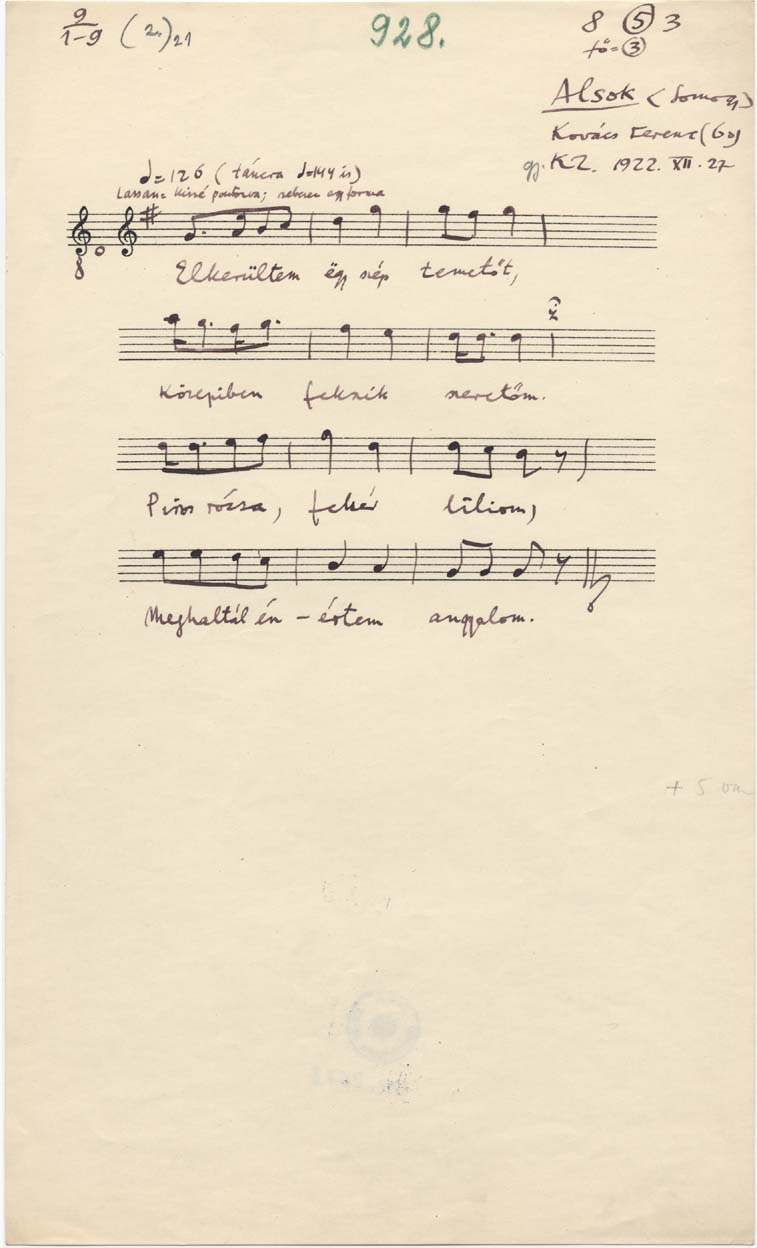 9
1-9 (2.) 21
928.
8 5 3
fő=3
Alsok (Somogy)
Kovács Ferenc (60)
gy. KZ. 1922. XII. 27
d=126 (táncra d=144 is)
Lassan: kissé pontozva;
8
Elkerültem ëgy szép temetőt,
Közepiben fekszik szeretőm.
Piros rózsa, fehér liliom,
Meghaltál én - értem angyalom.
+ 5